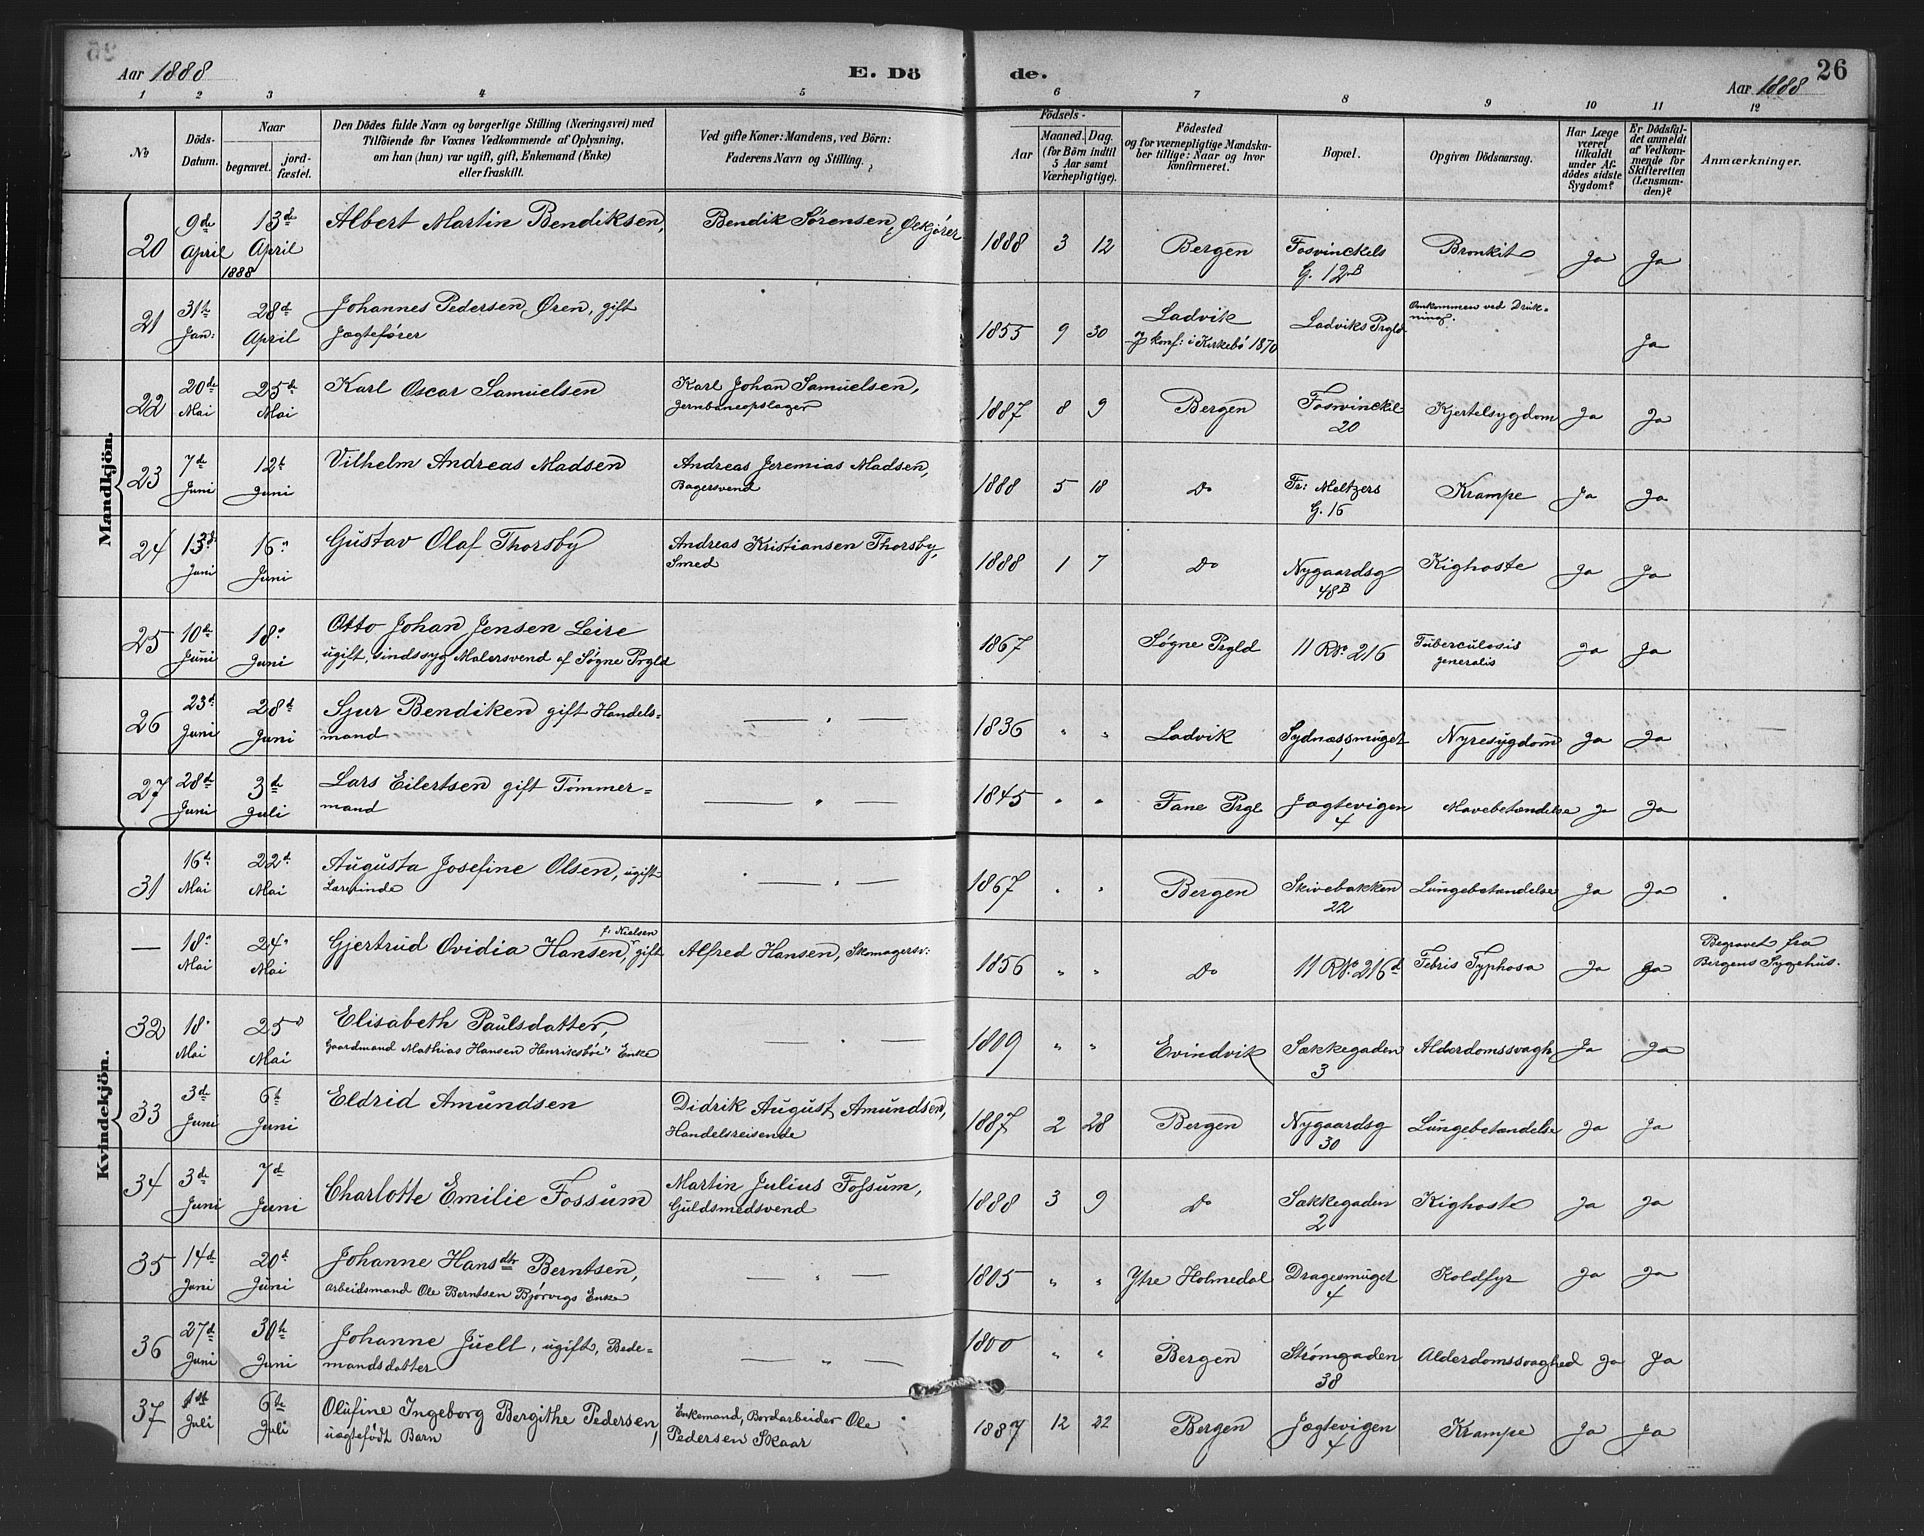 Aar 1888
E. Dö
de.
Aar 1888
26
1 2 3 4 5 6 7 8 9 10 11 12
No
Döds-
Datum.
Naar
begravet.
jord-
fæstet.
Den Dödes fulde Navn og borgerlige Stilling (Næringsvei) med
Tilföiende for Voxnes Vedkommende af Oplysning,
om han (hun) var ugift, gift, Enkemand (Enke)
eller fraskilt.
Ved gifte Koner: Mandens, ved Börn:
Faderens Navn og Stilling.
Födsels-
Aar
Maaned.
Dag.
(for Börn indtil
5 Aar samt
Værnepligtige).
Födested
og for værnepligtige Mandska-
ber tillige: Naar og hvor
konfirmeret.
Bopæl.
Opgiven Dödsaarsag.
Har Læge
været
tilkaldt
under Af-
dödes sidste
Sygdom?
Er Dödsfal-
det anmeldt
af Vedkom-
mende for
Skifteretten
(Lensman-
den)?
Anmærkninger.
Mandkjön.
20 9de April 13de April Albert Martin Bendiksen, Bendik Sørensen, Ølkjører 1888 3 12 Bergen Fosvinckels G. 12B Bronkit Ja Ja
1888
21 31te Jan: 28de April Johannes Pedersen Øren, gift
Jægtefører 1855 9 30 Ladvik Ladviks Prgld Omkommen ved Druk-
ning. Ja
konf: i Kirkebö 1870
22 20de Mai 25de Mai Karl Oscar Samuelsen Karl Johan Samuelsen,
Jernbaneopslager 1887 8 9 Bergen Fosvinckel 20 Kjertelsygdom Ja Ja
23 7de Juni 12te Juni Vilhelm Andreas Madsen Andreas Jeremias Madsen,
Bagersvend 1888 5 18 Do Fr: Meltzers G. 16 Krampe Ja Ja
24 13de Juni 16" Juni Gustav Olaf Thorsby Andreas Kristiansen Thorsby,
Smed 1888 1 7 Do Nygaardsg 48B Kighoste Ja Ja
25 10de Juni 18" Juni Otto Johan Jensen Leire
ugift, sindssyg Malersvend af Søgne Prgld 1867 Søgne Prgld 11 R No 216 Tuberculosis generalis Ja Ja
26 23d Juni 28d Juni Sjur Bendiken gift Handels=
mand — " — 1836 " " Ladvik Sydnæssmuget 1 Nyresygdom Ja Ja
27 28d Juni 3d Juli Lars Eilertsen gift Tömmer=
mand — " — 1845 " " Fane Prgl Jægtevigen 4 Mavebetændelse Ja Ja
Kvindekjön.
31 16d Mai 22d Mai Augusta Josefine Olsen, ugift
Lærerinde — " — 1867 " " Bergen Skivebakken 22 Lungebetændelse Ja Ja
— 18" Mai 24" Mai Gjertrud Ovidia Hansen, f: Nielsen gift Alfred Hansen, Skomagersv: 1856 " " Do 11 R No 216d Febris Typhosa Ja Ja Begravet fra
Bergens Sygehus.
32 18" Mai 25" Mai Elisabeth Paulsdatter,
Gaardmand Mathias Hansen Henriksböi's Enke — " — 1809 " " Evindvik Sækkegaden 3 Alderdomssvagh Ja Ja
33 3de Juni 6te Juni Eldrid Amundsen Didrik August Amundsen,
Handelsreisende 1887 2 28 Bergen Nygaardsg 30 Lungebetændelse Ja Ja
34 3de Juni 7d Juni Charlotte Emilie Fossum Martin Julius Fossum,
Guldsmedsvend 1888 3 9 Do Sækkegaden 2 Kighoste Ja Ja
35 14d Juni 20d Juni Johanne Hansdtr Berntsen,
Arbeidsmand Ole Berntsen Bjørvigs Enke — " — 1805 " " Ytre Holmedal Dragesmuget 4 Koldfyr Ja Ja
36 27d Juni 30te Juni Johanne Juell, ugift, Bede=
mandsdatter — " — 1800 " " Bergen Strömgaden 38 Alderdomssvaghed Ja Ja
37 1st Juli 6te Juli Olufine Ingeborg Bergithe Pedersen,
uægtefödt Barn Enkemand, Bordarbeider Ole
Pedersen Skaar 1887 12 22 Bergen Jægtevigen 4 Krampe Ja Ja